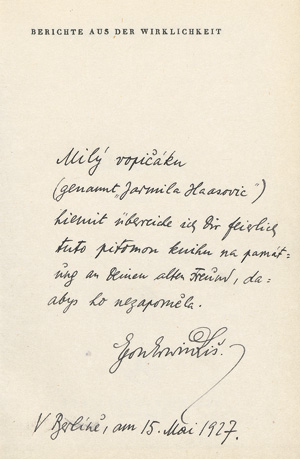 BERICHTE AUS DER WIRKLICHKEIT
Milý vopičáku
(genannt „Jarmila Haasovic“)
hiemit übereide ich Dir feierlich
tuto pitomou knihu na památ-
ung an Deinen alten Freund, da=
abys ho nezapoměla.
Egon Erwin Kiš.
V Berlíně, am 15. Mai 1927.